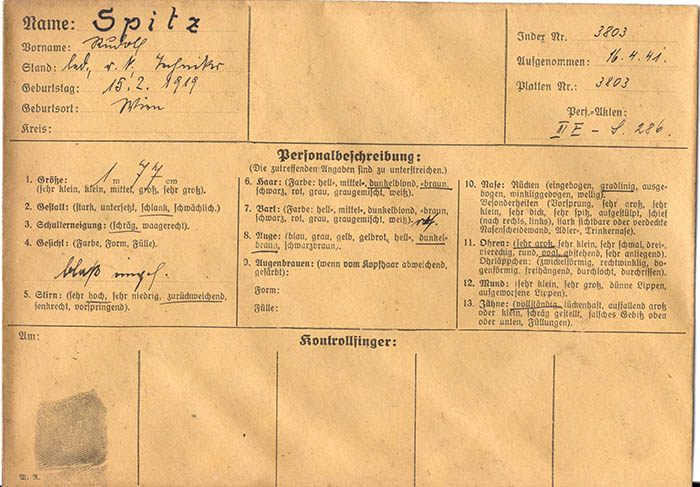 Name: Spitz
Vorname: Rudolf
Stand: led., r. k., Techniker
Geburtstag: 15. 2. 1919
Geburtsort: Wien
Kreis:
Index Nr. 3803
Aufgenommen: 16. 4. 41.
Platten Nr.: 3803
Pers.-Akten:
II E - S. 286.
Personalbeschreibung:
(Die zutreffenden Angaben sind zu unterstreichen.)
1. Größe: 1 m 77 cm
(sehr klein, klein, mittel, groß, sehr groß).
2. Gestalt: (stark, untersetzt, schlank, schwächlich).
3. Schulterneigung: (schräg, waagerecht).
4. Gesicht: (Farbe, Form, Fülle).
blaß
5. Stirn: (sehr hoch, sehr niedrig, zurückweichend,
senkrecht, vorspringend).
6. Haar: (Farbe: hell-, mittel-, dunkelblond, -braun,
schwarz, rot, grau, graugemischt, weiß).
7. Bart: (Farbe: hell-, mittel-, dunkelblond, -braun,
schwarz, rot, grau, graugemischt, weiß).
8. Auge: (blau, grau, gelb, gelbrot, hell-, dunkel-
braun, schwarzbraun).
9. Augenbrauen: (wenn vom Kopfhaar abweichend,
gefärbt):
Form:
Fülle:
10. Nase: Rücken (eingebogen, gradlinig, ausge-
bogen, winkliggebogen, wellig).
Besonderheiten (Vorsprung, sehr groß, sehr
klein, sehr dick, sehr spitz, aufgestülpt, schief
(nach rechts, links), stark sichtbare oder verdeckte
Nasenscheidewand, Adler-, Trinkernase).
11. Ohren: (sehr groß, sehr klein, sehr schmal, drei-,
viereckig, rund, oval, abstehend, sehr anliegend).
Ohrläppchen: (zwickelförmig, rechtwinklig, bo-
genförmig, freihängend, durchlocht, durchrissen).
12. Mund: (sehr klein, sehr groß, dünne Lippen,
aufgeworfene Lippen).
13. Zähne: (vollständig, lückenhaft, auffallend groß
oder klein, schräg gestellt, falsches Gebiß oben
oder unten, Füllungen).
Am:
Kontrollfinger:
M. R.